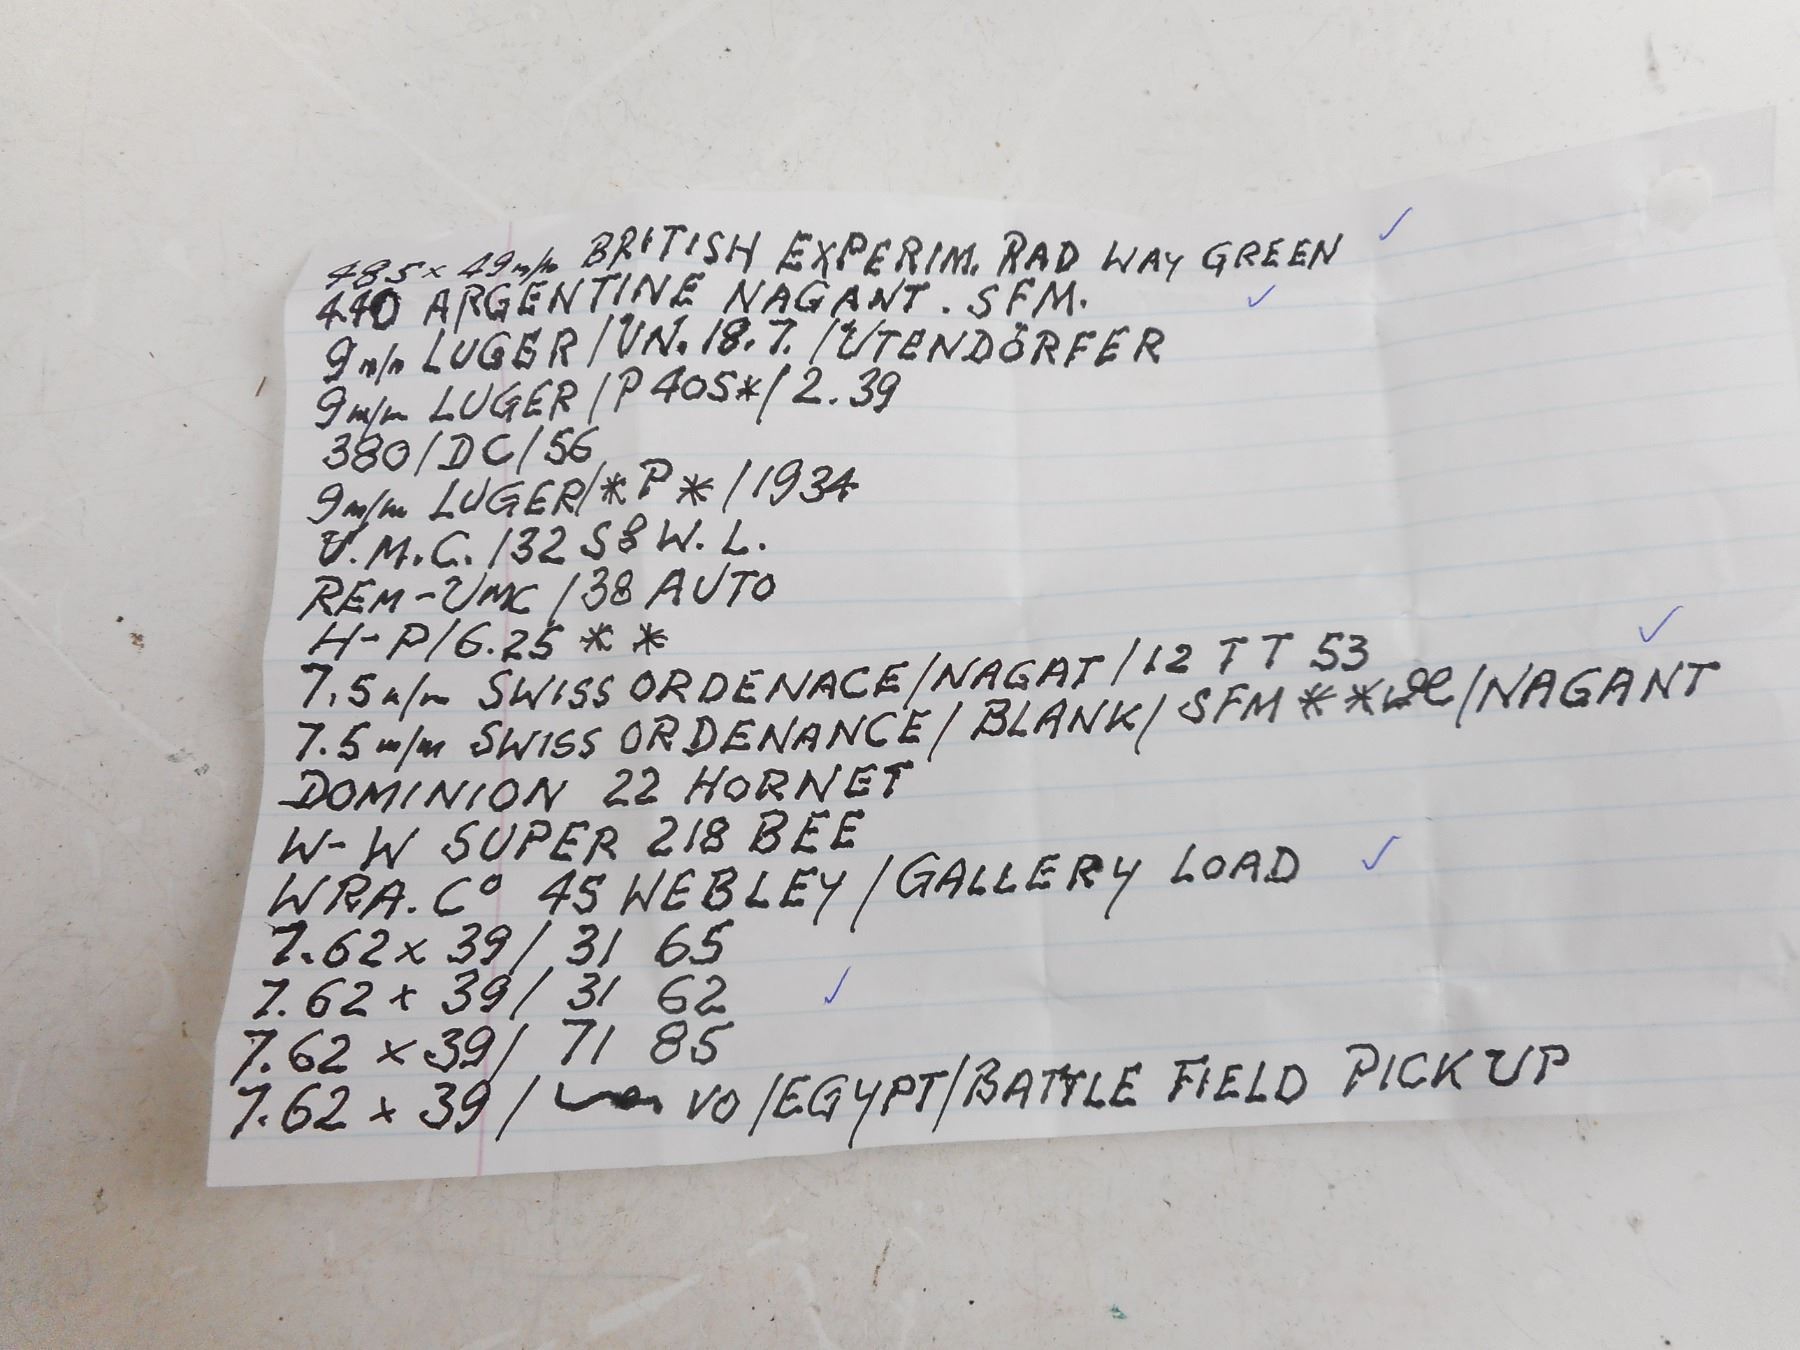 485 x 49 m/m BRITISH EXPERIM. RAD WAY GREEN ✓
440 ARGENTINE NAGANT. SFM. ✓
9 m/m LUGER / UN. 18.7. / UTENDÖRFER
9 m/m LUGER / P405* / 2.39
380 / DC / 56
9 m/m LUGER / *P* / 1934
U.M.C. / 32 S&W.L.
REM-UMC / 38 AUTO
H-P / 6.25 * *
7.5 m/m SWISS ORDENACE / NAGAT / 12 TT 53 ✓
7.5 m/m SWISS ORDENANCE / BLANK / SFM * * / NAGANT
DOMINION 22 HORNET
W-W SUPER 218 BEE
WRA. Cº 45 WEBLEY / GALLERY LOAD ✓
7.62 x 39 / 31 65
7.62 x 39 / 31 62 ✓
7.62 x 39 / 71 85
7.62 x 39 / VO / EGYPT / BATTLE FIELD PICK UP